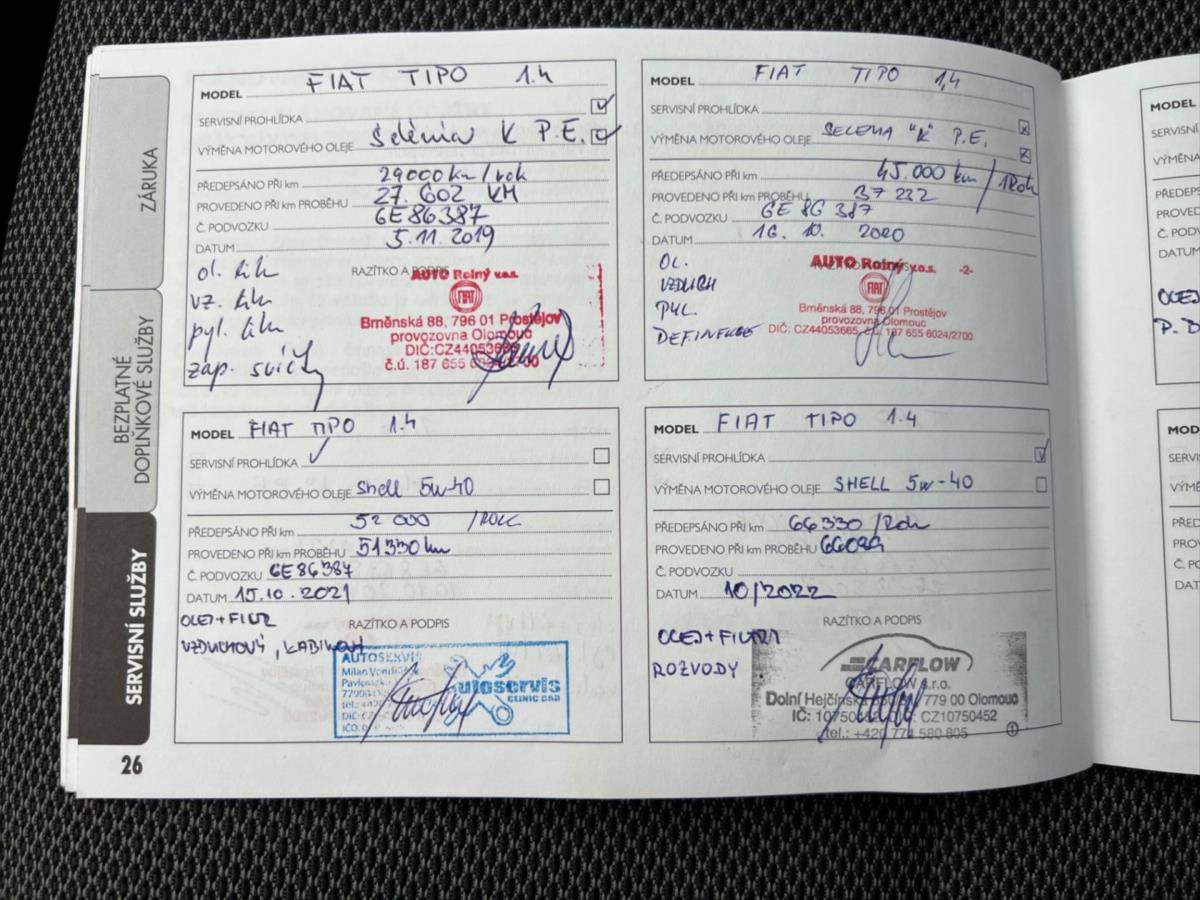 ZÁRUKA
BEZPLATNÉ
DOPLŇKOVÉ SLUŽBY
SERVISNÍ SLUŽBY
MODEL FIAT TIPO 1.4
SERVISNÍ PROHLÍDKA
VÝMĚNA MOTOROVÉHO OLEJE Selénia K P.E.
PŘEDEPSÁNO PŘI km 29000 km/rok
PROVEDENO PŘI km PROBĚHU 27.602 KM
Č. PODVOZKU 6E86387
DATUM 5.11.2019
RAZÍTKO A PODPIS
ol. fik
vz. fik
pyl. fik
zap. svíčky
AUTO Rolný v.o.s.
FIAT
Brněnská 88, 796 01 Prostějov
provozovna Olomouc
DIČ:CZ44053665
č.ú. 187 655
MODEL FIAT TIPO 1,4
SERVISNÍ PROHLÍDKA
VÝMĚNA MOTOROVÉHO OLEJE SELENIA "K" P.E.
PŘEDEPSÁNO PŘI km 45.000 km/1Rok
PROVEDENO PŘI km PROBĚHU 37 232
Č. PODVOZKU 6E 86 387
DATUM 16. 10. 2020
OL.
VZDUCH
PYL.
AUTO Rolný v.o.s. -2-
FIAT
Brněnská 88, 796 01 Prostějov
provozovna Olomouc
DIČ: CZ44053665, č.ú. 187 655 6024/2700
MODEL FIAT TIPO 1.4
SERVISNÍ PROHLÍDKA
VÝMĚNA MOTOROVÉHO OLEJE Shell 5w40
PŘEDEPSÁNO PŘI km 52 000 /ROK
PROVEDENO PŘI km PROBĚHU 51330 km
Č. PODVOZKU 6E86387
DATUM 15.10.2021
OLEJ+FILTR
RAZÍTKO A PODPIS
VZDUCHOVÝ, KABINOVÝ
AUTOSERVIS
Milan
autoservis
CLINIC CAR
MODEL FIAT TIPO 1.4
SERVISNÍ PROHLÍDKA
VÝMĚNA MOTOROVÉHO OLEJE SHELL 5w-40
PŘEDEPSÁNO PŘI km 66330/Rok
PROVEDENO PŘI km PROBĚHU 66089
Č. PODVOZKU
DATUM 10/2022
RAZÍTKO A PODPIS
OLEJ+FILTR
ROZVODY
CARFLOW
CARFLOW s.r.o.
Dolní Hejčínská 779 00 Olomouc
IČ: 10750452 CZ10750452
tel.: +420 774 580 805
26
MODEL
SERVISNÍ
VÝMĚNA
PŘEDEPS
PROVED
Č. PODV
DATUM
OLEJ
MOD
SERVIS
VÝMĚ
PŘED
PROV
Č. PC
DAT